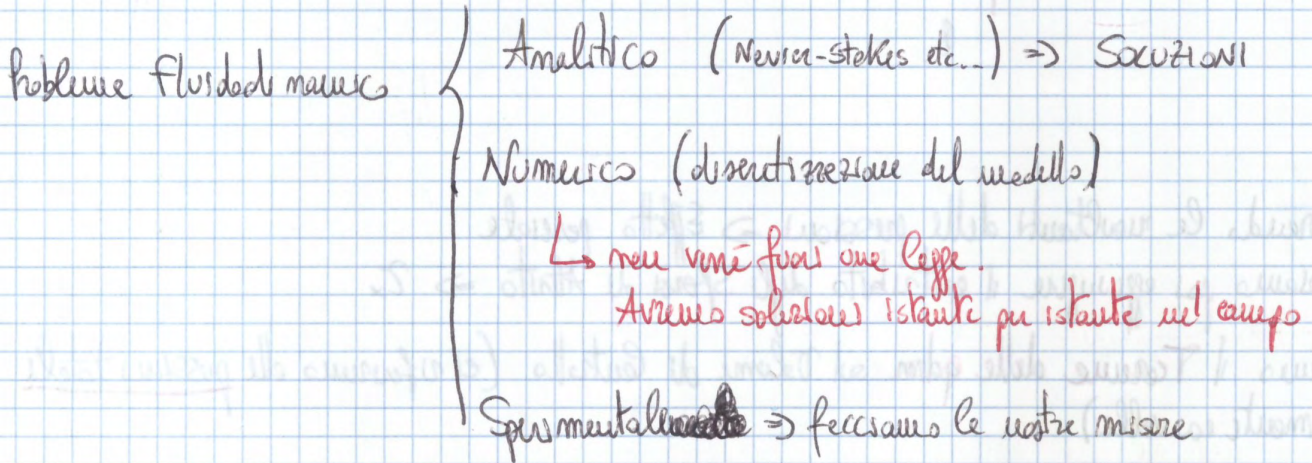 Problema fluidodinamico
Analitico (Navier-Stokes etc..) => SOLUZIONI
Numerico (discretizzazione del modello)
↳ non verrà fuori una legge.
Avremo soluzioni istante per istante nel campo
Sperimentale => facciamo le nostre misure